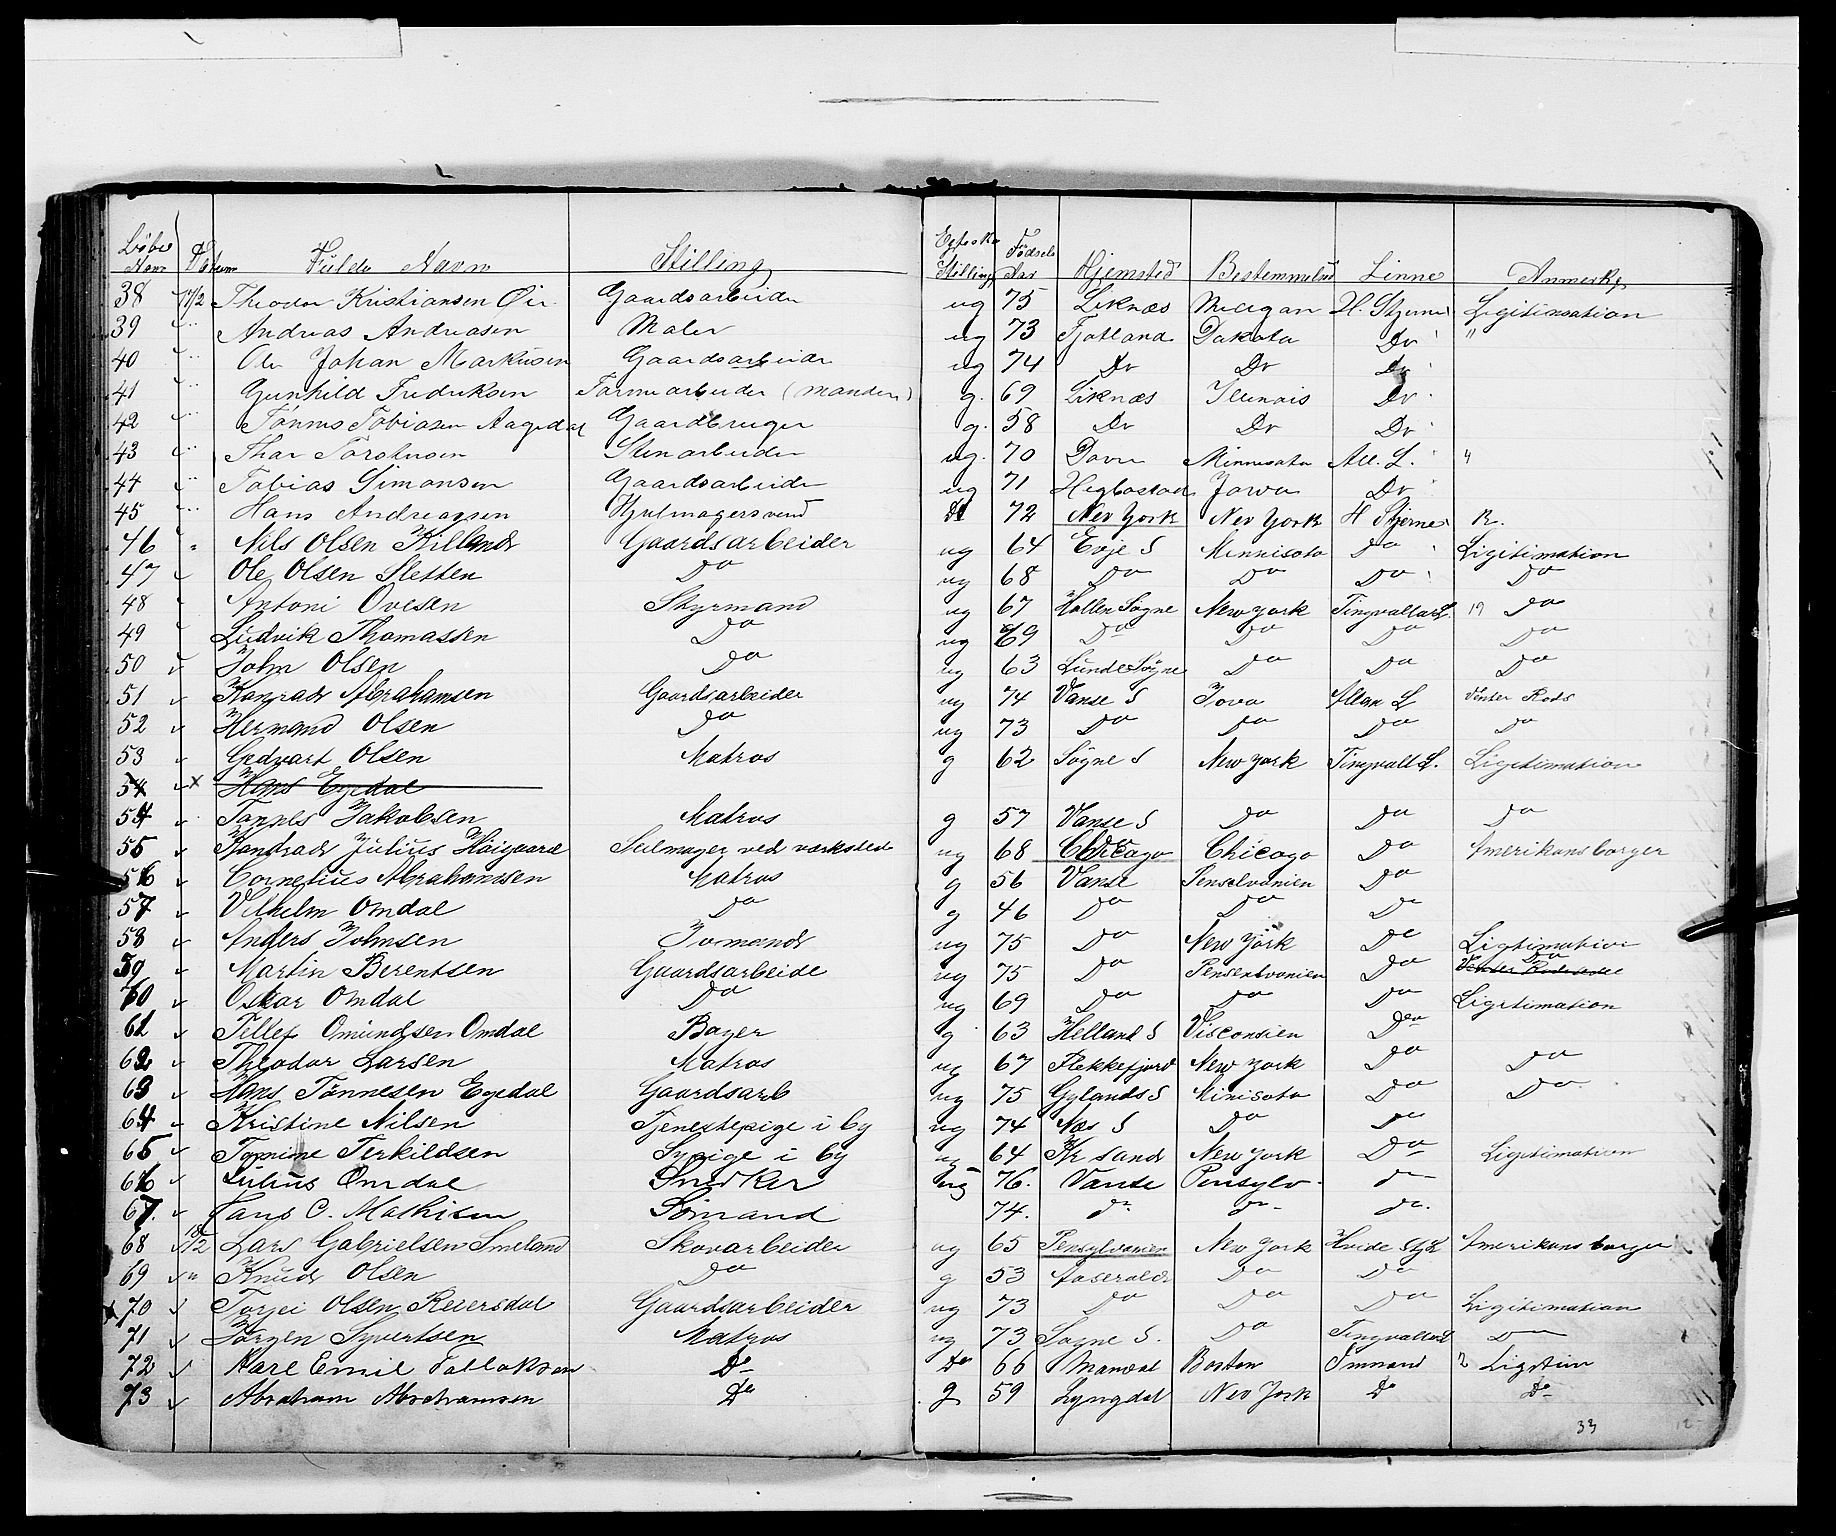 Løbe Nom Datum Fulde Navn Stilling Egtesk. Stilling Fødsels Aar Hjemsted Bestemmelsed Linne Anmerkg
38 17/2 Theodor Kristiansen Øie Gaardsarbeider ug 75 Liknæs Michigan H. Stjerne Legitimation
39 " Andreas Andreasen Maler ug 73 Fjotland Dakota Do "
40 " Ole Johan Markusen Gaardsarbeider ug 74 Do Do Do
41 " Gunhild Fredriksen Farmearbeider (Manden) g. 69 Liknæs Illinois Do
42 " Tønnes Tobiasen Aagedal Gaardbruger g. 58 Do Do Do
43 " Thor Torstensen Stenarbeider ug. 70 Dovre Minnesota All. L. "
44 " Tobias Simonsen Gaardsarbeider ug 71 Hegbostad Jowa Do
45 " Hans Andreassen Hjulmagersvend Do 72 Nev York Nev York H Stjerne R.
46 " Nils Olsen Killand Gaardsarbeider ug 64 Evje S Minnisota Do Ligitimation
47 Ole Olsen Sletten Do ug 68 Do Do Do Do
48 Antoni Ovesen Styrmand ug 67 Hallen Sogne New York Tingvalla L. 19 Do
49 Ludvik Thomassen Do ug 69 Do Do Do Do
50 John Olsen Do ug 63 Lunde Søgne Do Do Do
51 Konrad Abrahamsen Gaardsarbeider ug 74 Vanse S Jova Allan L Venter Rods
52 Hermand Olsen Do ug 73 Do Do Do Do
53 Gedvart Olsen Matros g 62 Søgne S New York Tingvall L. Ligitimation
54 x Hans Egedal
54 Tønnes Jakobsen Matros g 57 Vanse S Do Do Do
55 Kondrad Julius Høigaard Seilmager ved værksted ug 68 Chicago Chicago Do Amerikansborger
56 Cornelius Abrahamsen Matros g 56 Vanse Penselvanien Do
57 Vilhelm Omdal Do g 46 Do Do Do
58 Anders Johnsen Jomand ug 75 Do New York Do Ligtimation
59 Martin Berentsen Gaardsarbeide ug 75 Do Penselvanien Do Do
60 Oskar Omdal Do ug 69 Do Do Do Ligitimation
61 Tellef Omundsen Omdal Bager g 63 Helland S Visconsien Do
62 Theodor Larsen Matros ug 67 Flekkefjord New York Do Do
63 Hans Tønnesen Egedal Gaardsarb ug 75 Gylands S Minisota Do Do
64 Kristine Nilsen Tjenestepige i by ug 74 Næs S Do Do
65 Tomine Terkildsen Sypige i by ug 64 Kr sand New York Do Ligitimation
66 Julius Omdal Snedker ug 76. Vanse Pensylv. Do
67. Jans C. Mathisen Sømand 74. do do. do.
68 18/2 Lars Gabrielsen Smeland Skovarbeider ug 65 Pensylvanien New York Hvide Stj L Amerikans borger
69 " Knud Olsen Do g 53 Aaserald Do Do
70 Torjei Olsen Reiersdal Gaardsarbeider ug 73 Do Do Do Ligitimation
71 Jørgen Syvertsen Matros ug 73 Søgne S. Do Tingvalla L Do
72 Karl Emil Tallaksen Do Do 66 Mandal Boston Inmand Ligitim
73 Abraham Abrahamsen Do g 59 Lyngdal Nev York Do Do
33 12